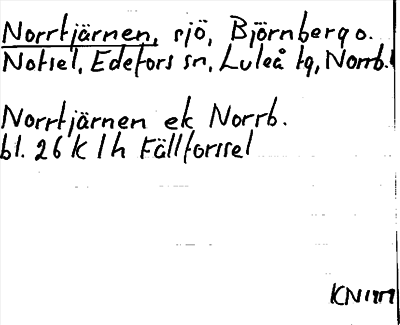 Norrtjärnen, sjö, Björnberg o.
Notsel, Edefors sn, Luleå tg, Norrb.l
Norrtjärnen ek Norrb.
bl. 26 K 1 h Fällforssel